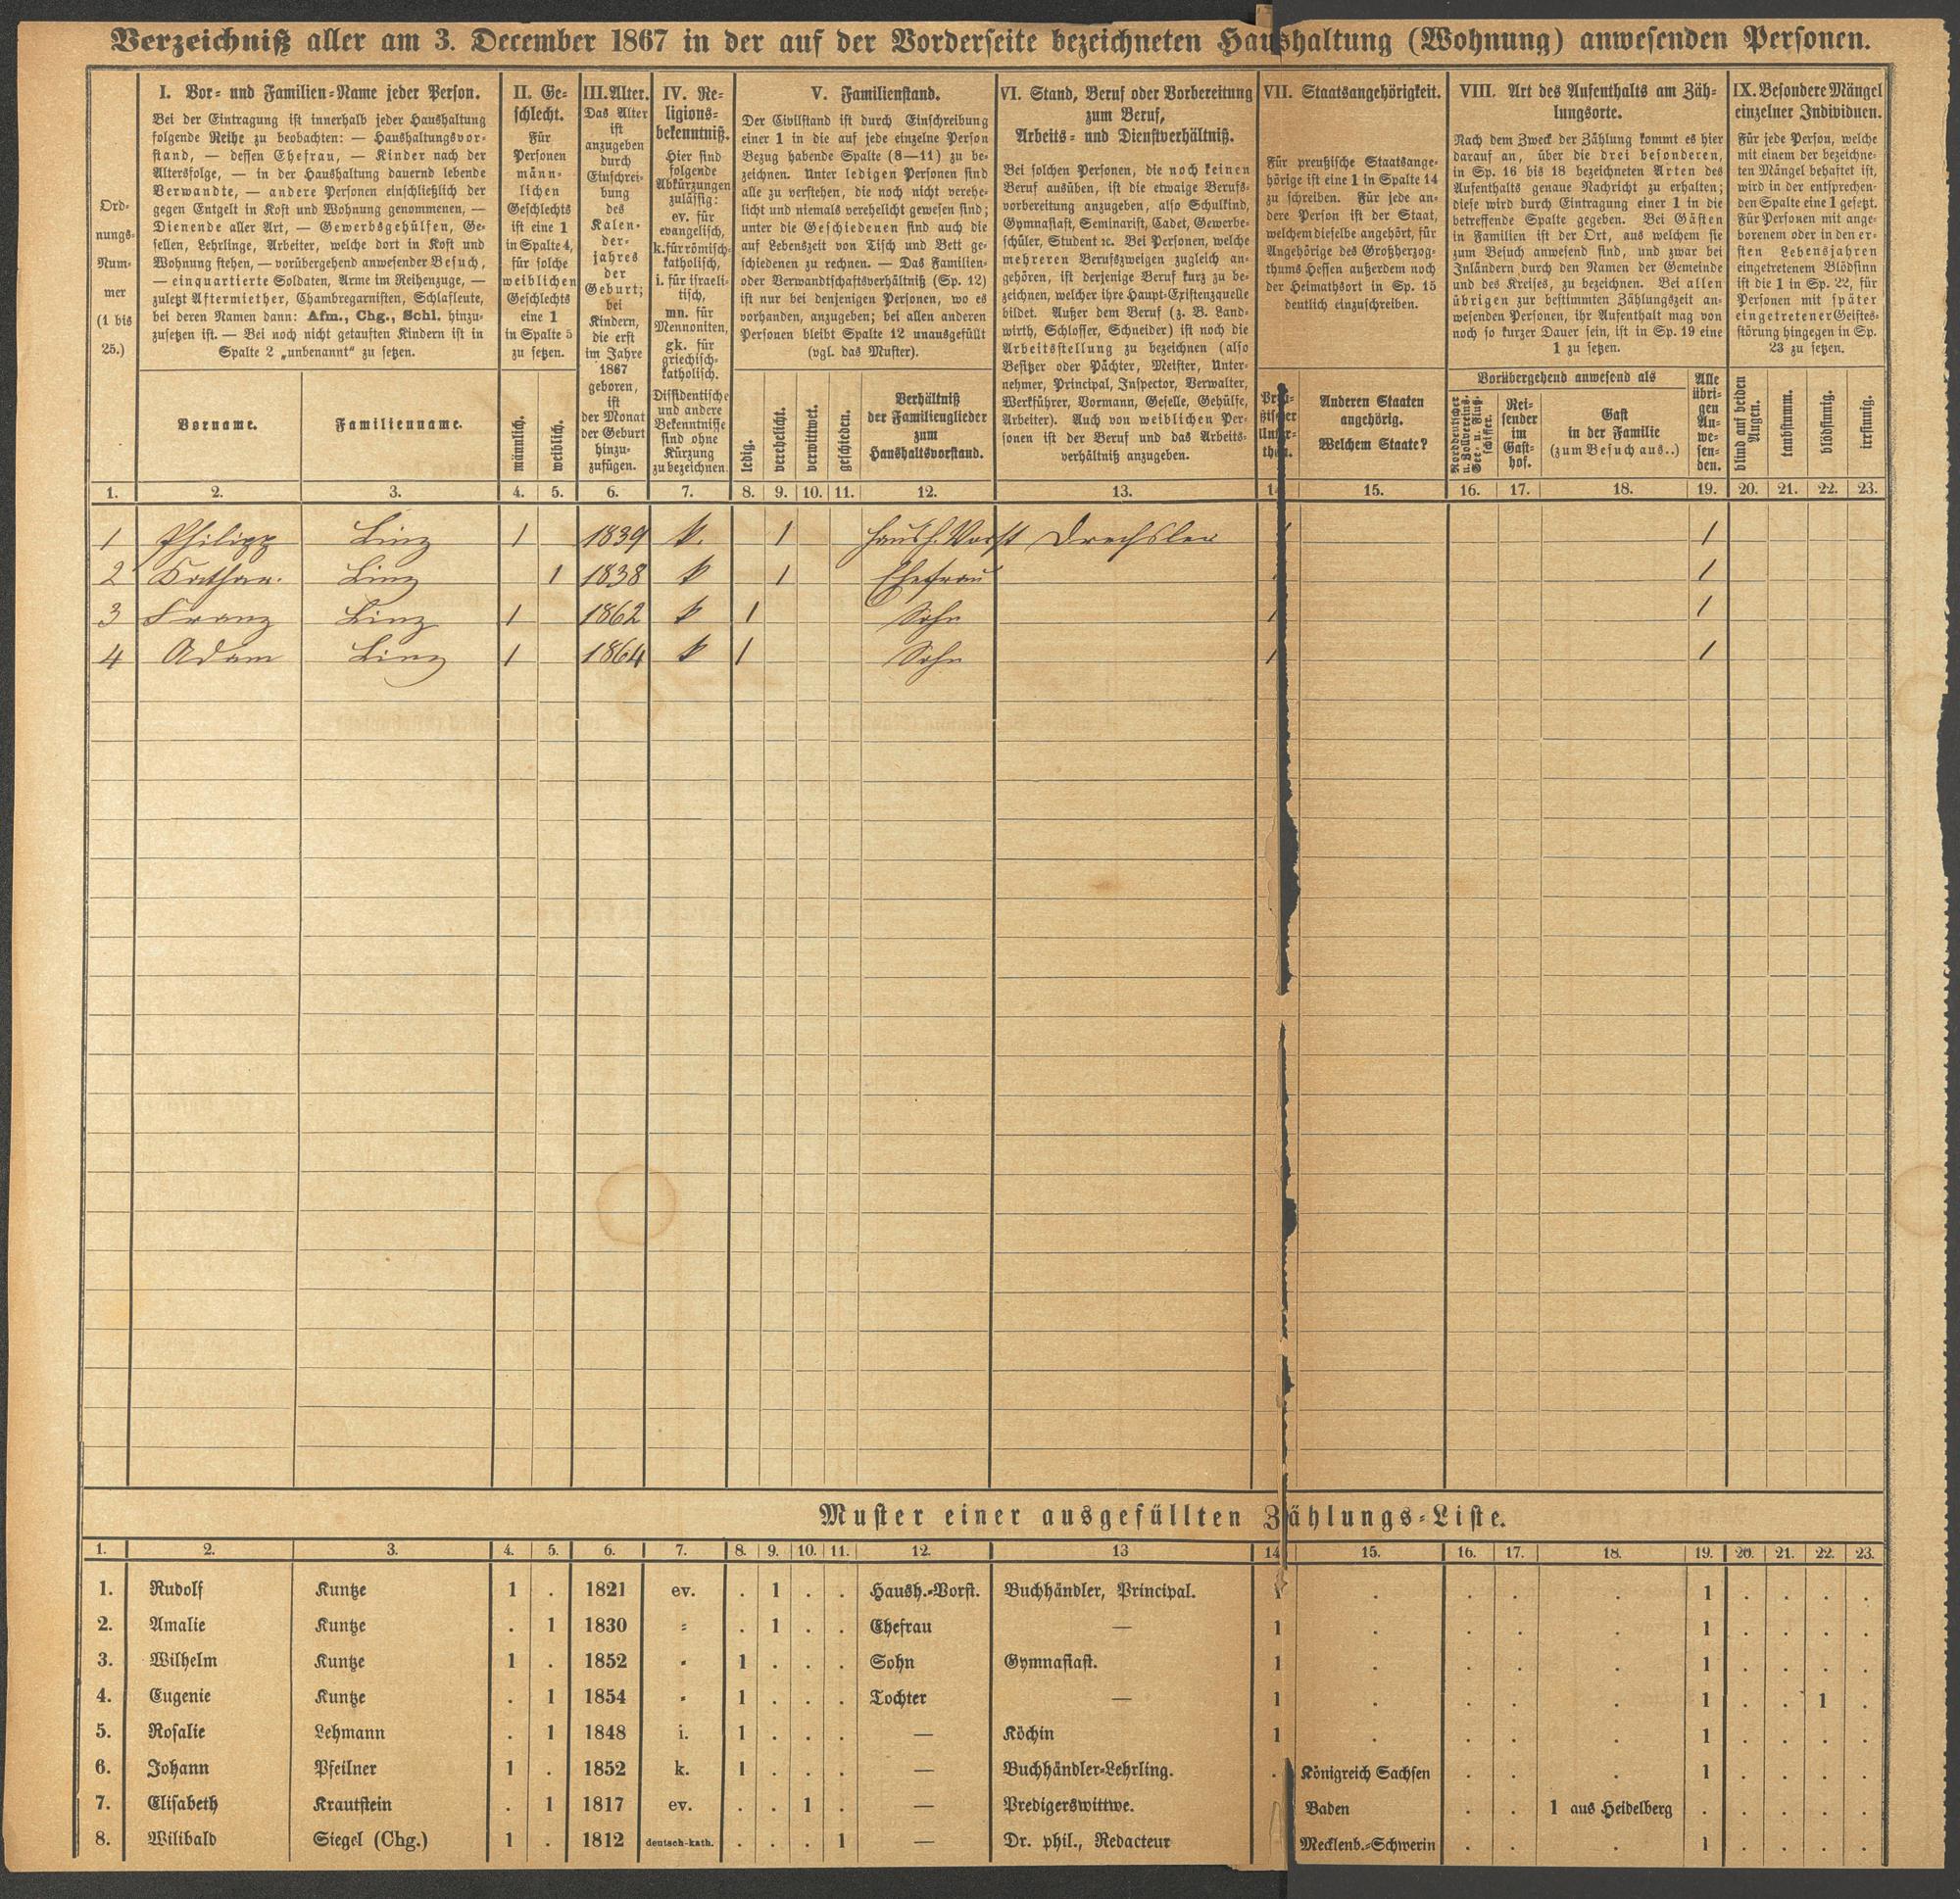 Verzeichniß aller am 3. December 1867 in der auf der Vorderseite bezeichneten Haushaltung (Wohnung) anwesenden Personen.
Ord-
nungs-
Num-
mer
(1 bis
25.)
I. Vor- und Familien-Name jeder Person.
Bei der Eintragung ist innerhalb jeder Haushaltung
folgende Reihe zu beobachten: — Haushaltungsvor-
stand, — dessen Ehefrau, — Kinder nach der
Altersfolge, — in der Haushaltung dauernd lebende
Verwandte, — andere Personen einschließlich der
gegen Entgelt in Kost und Wohnung genommenen, —
Dienende aller Art, — Gewerbsgehülfen, Ge-
sellen, Lehrlinge, Arbeiter, welche dort in Kost und
Wohnung stehen, — vorübergehend anwesender Besuch,
— einquartierte Soldaten, Arme im Reihenzuge, —
zuletzt Aftermiether, Chambregarnisten, Schlafleute,
bei deren Namen dann: Afm., Chg., Schl. hinzu-
zusetzen ist. — Bei noch nicht getauften Kindern ist in
Spalte 2 „unbenannt“ zu setzen.
Vorname.
Familienname.
II. Ge-
schlecht.
Für
Personen
männ-
lichen
Geschlechts
ist eine 1
in Spalte 4,
für solche
weiblichen
Geschlechts
eine 1
in Spalte 5
zu setzen.
männlich.
weiblich.
III. Alter.
Das Alter
ist
anzugeben
durch
Einschrei-
bung
des
Kalen-
der-
jahres
der
Geburt;
bei
Kindern,
die erst
im Jahre
1867
geboren,
ist
der Monat
der Geburt
hinzu-
zufügen.
IV. Re-
ligions-
bekenntniß.
Hier sind
folgende
Abkürzungen
zulässig:
ev. für
evangelisch,
k. für römisch-
katholisch,
i. für israeli-
tisch,
mn. für
Mennoniten,
gk. für
griechisch-
katholisch.
Dissidentische
und andere
Bekenntnisse
sind ohne
Kürzung
zu bezeichnen.
V. Familienstand.
Der Civilstand ist durch Einschreibung
einer 1 in die auf jede einzelne Person
Bezug habende Spalte (8—11) zu be-
zeichnen. Unter ledigen Personen sind
alle zu verstehen, die noch nicht verehe-
licht und niemals verehelicht gewesen sind;
unter die Geschiedenen sind auch die
auf Lebenszeit von Tisch und Bett ge-
schiedenen zu rechnen. — Das Familien-
oder Verwandtschaftsverhältniß (Sp. 12)
ist nur bei denjenigen Personen, wo es
vorhanden, anzugeben; bei allen anderen
Personen bleibt Spalte 12 unausgefüllt
(vgl. das Muster).
ledig.
verehelicht.
verwittwet.
geschieden.
Verhältniß
der Familienglieder
zum
Haushaltsvorstand.
VI. Stand, Beruf oder Vorbereitung
zum Beruf,
Arbeits- und Dienstverhältniß.
Bei solchen Personen, die noch keinen
Beruf ausüben, ist die etwaige Berufs-
vorbereitung anzugeben, also Schulkind,
Gymnasiast, Seminarist, Cadet, Gewerbe-
schüler, Student ꝛc. Bei Personen, welche
mehreren Berufszweigen zugleich an-
gehören, ist derjenige Beruf kurz zu be-
zeichnen, welcher ihre Haupt-Existenzquelle
bildet. Außer dem Beruf (z. B. Land-
wirth, Schlosser, Schneider) ist noch die
Arbeitsstellung zu bezeichnen (also
Besitzer oder Pächter, Meister, Unter-
nehmer, Principal, Inspector, Verwalter,
Werkführer, Vormann, Geselle, Gehülfe,
Arbeiter). Auch von weiblichen Per-
sonen ist der Beruf und das Arbeits-
verhältniß anzugeben.
VII. Staatsangehörigkeit.
Für preußische Staatsange-
hörige ist eine 1 in Spalte 14
zu schreiben. Für jede an-
dere Person ist der Staat,
welchem dieselbe angehört, für
Angehörige des Großherzog-
thums Hessen außerdem noch
der Heimathsort in Sp. 15
deutlich einzuschreiben.
Anderen Staaten
angehörig.
Welchem Staate?
VIII. Art des Aufenthalts am Zäh-
lungsorte.
Nach dem Zweck der Zählung kommt es hier
darauf an, über die drei besonderen,
in Sp. 16 bis 18 bezeichneten Arten des
Aufenthalts genaue Nachricht zu erhalten;
diese wird durch Eintragung einer 1 in die
betreffende Spalte gegeben. Bei Gästen
in Familien ist der Ort, aus welchem sie
zum Besuch anwesend sind, und zwar bei
Inländern durch den Namen der Gemeinde
und des Kreises, zu bezeichnen. Bei allen
übrigen zur bestimmten Zählungszeit an-
wesenden Personen, ihr Aufenthalt mag von
noch so kurzer Dauer sein, ist in Sp. 19 eine
1 zu setzen.
Vorübergehend anwesend als
Norddeutscher
u. Zollvereins-
See- u. Fluß-
schiffer.
Rei-
sender
im
Gast-
hof.
Gast
in der Familie
(zum Besuch aus..)
Alle
übri-
gen
An-
we-
sen-
den.
IX. Besondere Mängel
einzelner Individuen.
Für jede Person, welche
mit einem der bezeichne-
ten Mängel behaftet ist,
wird in der entsprechen-
den Spalte eine 1 gesetzt.
Für Personen mit ange-
borenem oder in den er-
sten Lebensjahren
eingetretenem Blödsinn
ist die 1 in Sp. 22, für
Personen mit später
eingetretener Geistes-
störung hingegen in Sp.
23 zu setzen.
blind auf beiden
Augen.
taubstumm.
blödsinnig.
irrsinnig.
1. 2. 3. 4. 5. 6. 7. 8. 9. 10. 11. 12. 13. 14 15. 16. 17. 18. 19. 20. 21. 22. 23.
1 Philipp Linz 1 1839 k. 1 Haush. Vorst Drechsler 1
2 Kathar. Linz 1 1838 k 1 Ehefrau 1
3 Franz Linz 1 1862 k 1 Sohn 1 1
4 Adam Linz 1 1864 k 1 Sohn 1 1
Muster einer ausgefüllten Zählungs-Liste.
1. 2. 3. 4. 5. 6. 7. 8. 9. 10. 11. 12. 13 14 15. 16. 17. 18. 19. 20. 21. 22. 23.
1. Rudolf Kuntze 1 . 1821 ev. . 1 . . Haush.-Vorst. Buchhändler, Principal. 1 . . . . 1 . . . .
2. Amalie Kuntze . 1 1830 = . 1 . . Ehefrau — 1 . . . . 1 . . . .
3. Wilhelm Kuntze 1 . 1852 = 1 . . . Sohn Gymnasiast. 1 . . . . 1 . . . .
4. Eugenie Kuntze . 1 1854 = 1 . . . Tochter — 1 . . . . 1 . . 1 .
5. Rosalie Lehmann . 1 1848 i. 1 . . . — Köchin 1 . . . . 1 . . . .
6. Johann Pfeilner 1 . 1852 k. 1 . . . — Buchhändler-Lehrling. . Königreich Sachsen . . . 1 . . . .
7. Elisabeth Krautstein . 1 1817 ev. . . 1 . — Predigerswittwe. Baden . . 1 aus Heidelberg . . . . .
8. Wilibald Siegel (Chg.) 1 . 1812 deutsch-kath. . . . 1 — Dr. phil., Redacteur Mecklenb.-Schwerin . . . 1 . . . .